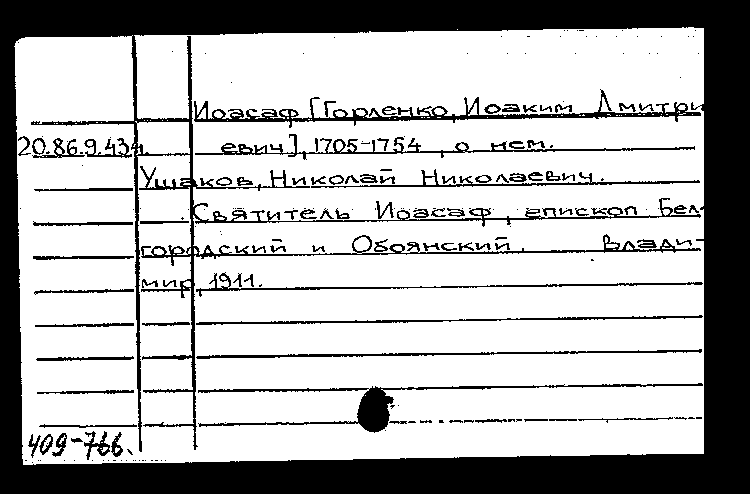 Иоасаф [Горленко, Иоаким Дмитри
20.86.9.434. евич], 1705-1754, о нем.
Ушаков, Николай Николаевич.
Святитель Иоасаф, епископ Бел-
городский и Обоянский. Влади-
мир, 1911.
409-766.